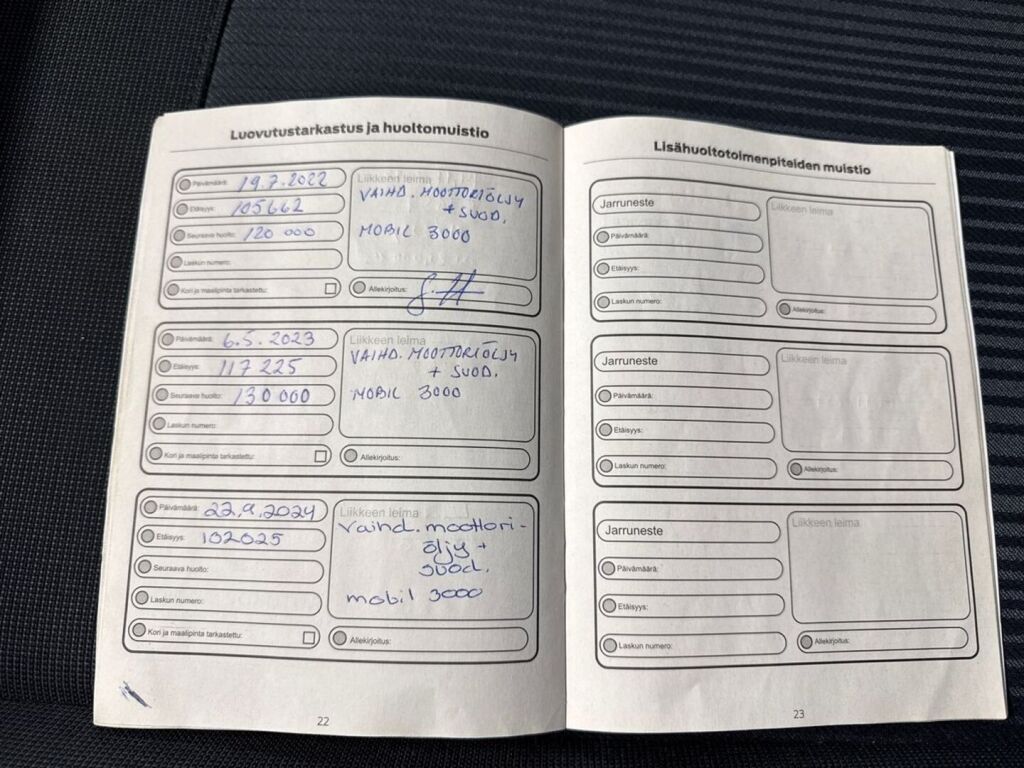 Luovutustarkastus ja huoltomuistio
Päivämäärä: 19.7.2022
Etäisyys: 105662
Seuraava huolto: 120 000
Laskun numero:
Kori ja maalipinta tarkastettu:
Liikkeen leima
VAIHD. MOOTTORIÖLJY
+ SUOD.
MOBIL 3000
Allekirjoitus:
Päivämäärä: 6.5.2023
Etäisyys: 117 225
Seuraava huolto: 130 000
Laskun numero:
Kori ja maalipinta tarkastettu:
Liikkeen leima
VAIHD. MOOTTORIÖLJY
+ SUOD.
MOBIL 3000
Allekirjoitus:
Päivämäärä: 22.9.2024
Etäisyys: 102025
Seuraava huolto:
Laskun numero:
Kori ja maalipinta tarkastettu:
Liikkeen leima
Vaihd. moottori-
öljy +
suod.
mobil 3000
Allekirjoitus:
22
Lisähuoltotoimenpiteiden muistio
Jarruneste
Päivämäärä:
Etäisyys:
Laskun numero:
Liikkeen leima
Allekirjoitus:
Jarruneste
Päivämäärä:
Etäisyys:
Laskun numero:
Liikkeen leima
Allekirjoitus:
Jarruneste
Päivämäärä:
Etäisyys:
Laskun numero:
Liikkeen leima
Allekirjoitus:
23